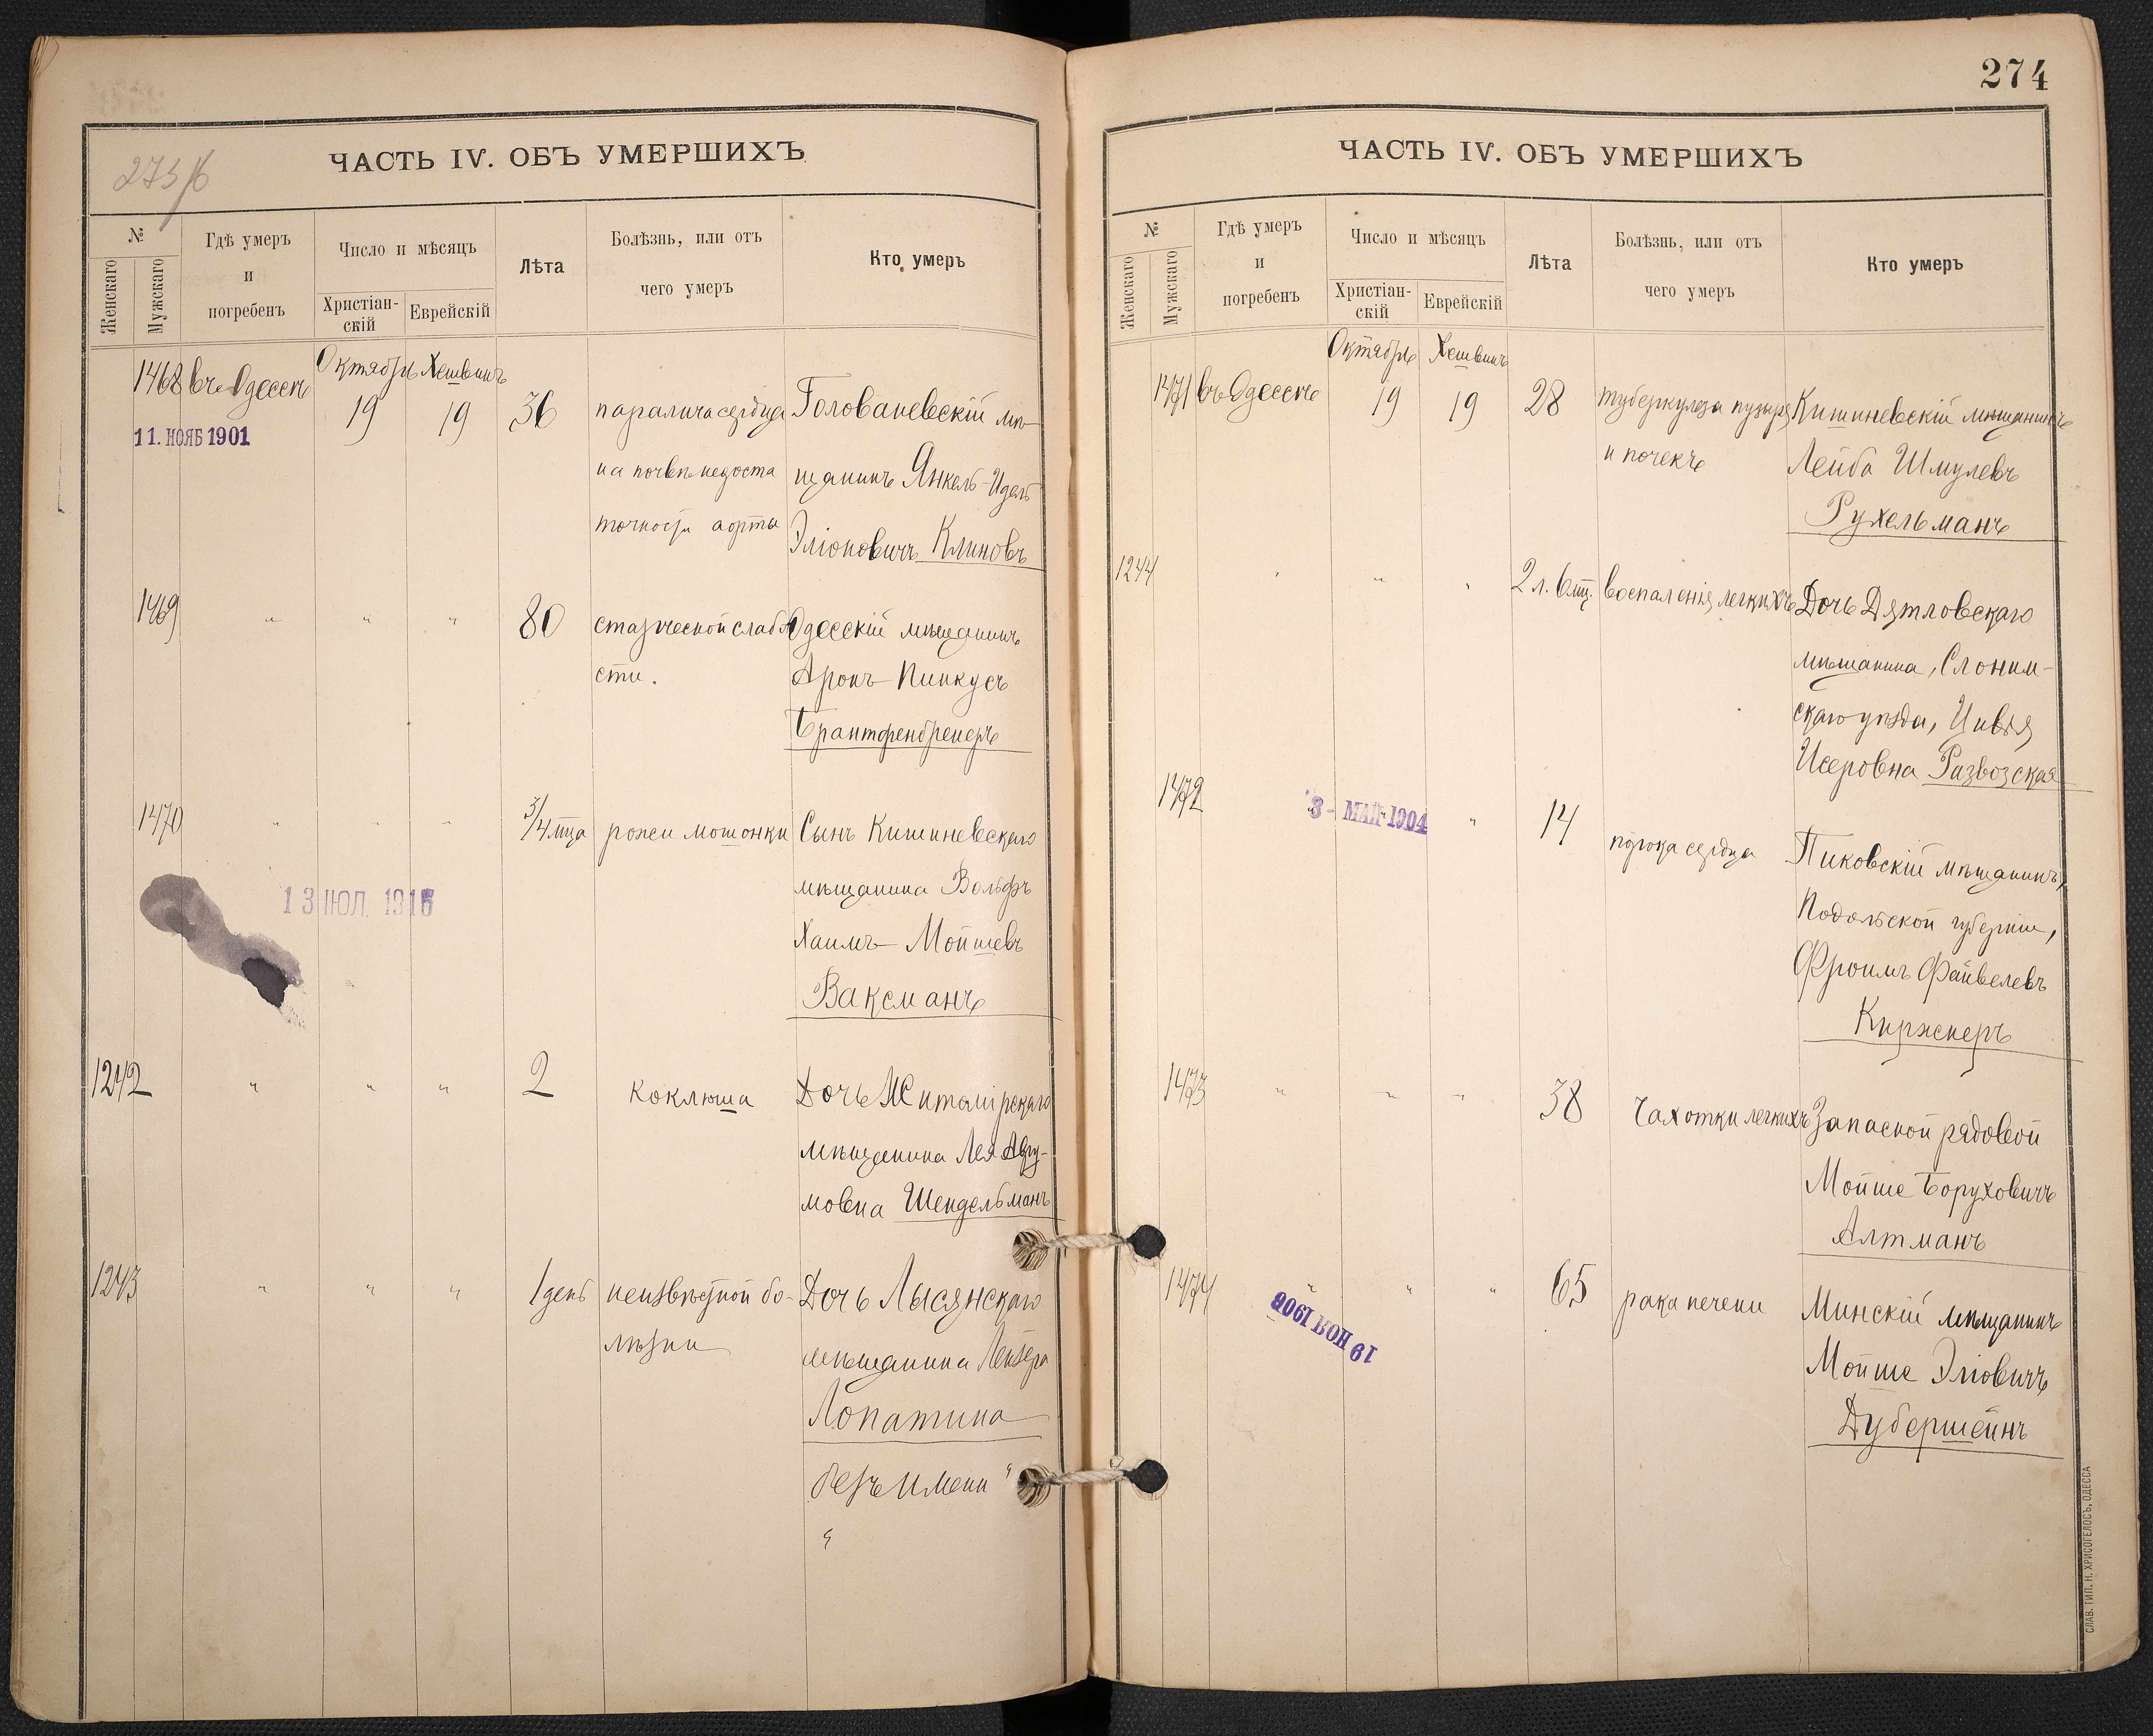 ЧАСТЬ IV. ОБЪ УМЕРШИХЪ
№
Женскаго
Мужскаго
Гдѣ умеръ
и
погребенъ
Число и мѣсяцъ
Христіан-
скій
Еврейскій
Лѣта
Болѣзнь, или отъ
чего умеръ
Кто умеръ
1468 въ Одессѣ Октябрь Хешвинъ
19 19 36
11. НОЯБ 1901
паралича сердца
на почвѣ недоста
точности аорты
Голованевскій мѣ-
щанинъ Янкель-Идель
Эліоковичъ Клиновъ
1469 " " " 80
старческой слабо
сти.
Одесскій мѣщанинъ
Аронъ-Пинкусъ
Брантфенбренеръ
1470 " " " 3/4 мца рожи мошонки
13 ИЮЛ. 1916
Сынъ Кишиневскаго
мѣщанина Вольфъ
Хаимъ-Мойшевъ
Ваксманъ
1242 " " " 2 коклюша
Дочь Житомірскаго
мѣщанина Лея Авру-
мовна Шендельманъ
1243 " " " 1 день
неизвѣстной бо-
лѣзни
Дочь Лысянскаго
мѣщанина Лейзера
Лопатина
"безъ имени"
274
ЧАСТЬ IV. ОБЪ УМЕРШИХЪ
№
Женскаго
Мужскаго
Гдѣ умеръ
и
погребенъ
Число и мѣсяцъ
Христіан-
скій
Еврейскій
Лѣта
Болѣзнь, или отъ
чего умеръ
Кто умеръ
1471 въ Одессѣ Октябрь Хешвинъ
19 19 28
туберкулеза пузыря
и почекъ
Кишиневскій мѣщанинъ
Лейба Шмулевъ
Рухельманъ
1244 " " " 2 л. 6 мц. воспаленія легкихъ
Дочь Дятловскаго
мѣщанина, Слоним-
скаго уѣзда, Цивья
Исеровна Развозская
1472 " " " 14 порока сердца
3 - МАЙ 1904
Пиковскій мѣщанинъ,
Подольской губерніи,
Фроимъ Файвелевъ
Киржнеръ
1473 " " " 38 чахотки легкихъ
Запасной рядовой
Мойше Боруховичъ
Алтманъ
1474 " " " 65 рака печени
19 НОЯ 1908
Минскій мѣщанинъ
Мойше Эліовичъ
Дуберштейнъ
СЛАВ. ТИП. Н. ХРИСОГЕЛОСЪ, ОДЕССА